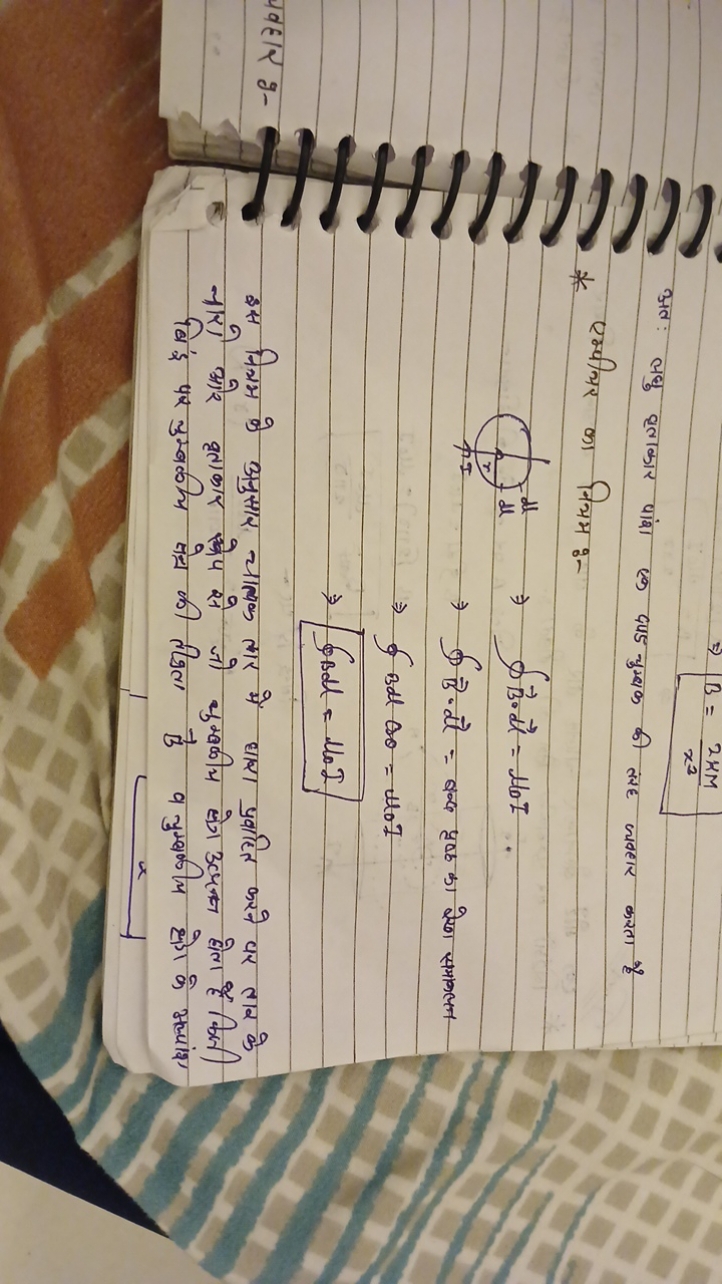 व्यवहार है-
⇒ B = 2KM / x³
अतः लघु वृत्ताकार पाश एक छड़ चुम्बक की तरह व्यवहार करता है
* एम्पीयर का नियम है-
dl
dl
r
I
⇒ ∮ B⃗·dl⃗ = μ₀I
⇒ ∮ B⃗·dl⃗ = बन्द पृष्ठ का रेखा समाकलन
⇒ ∮ Bdl cosθ = μ₀I
⇒ ∮ Bdl = μ₀I
इस नियम के अनुसार, चालक तार में धारा प्रवाहित करने पर तार के
चारो ओर वृत्ताकार रूप से जो चुम्बकीय क्षेत्र उत्पन्न होता है किसी
बिंदु पर चुम्बकीय क्षेत्र की तीव्रता व चुम्बकीय क्षेत्र के अल्पांश